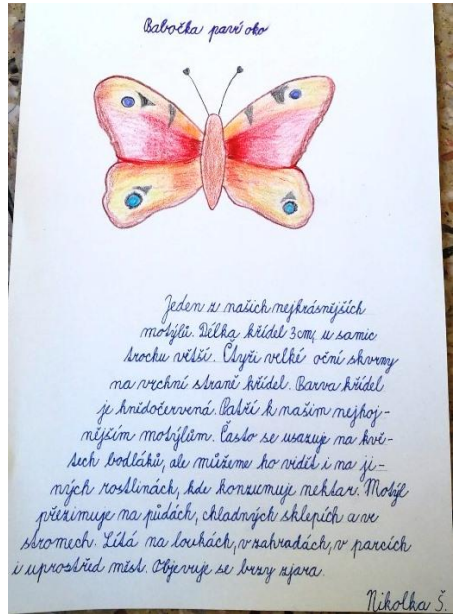 Babočka paví oko
Jeden z našich nejkrásnějších
motýlů. Délka křídel 3cm, u samic
trochu větší. Čtyři velké oční skvrny
na vrchní straně křídel. Barva křídel
je hnědočervená. Patří k našim nejhoj-
nějším motýlům. Často se usazuje na kvě-
tech bodláků, ale můžeme ho vidět i na ji-
ných rostlinách, kde konzumuje nektar. Motýl
přezimuje na půdách, chladných sklepích a ve
stromech. Lítá na loukách, v zahradách, v parcích
i uprostřed měst. Objevuje se brzy zjara.
Nikolka Š.